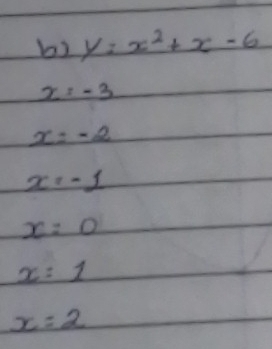 b) y = x² + x - 6
x = -3
x = -2
x = -1
x = 0
x = 1
x = 2